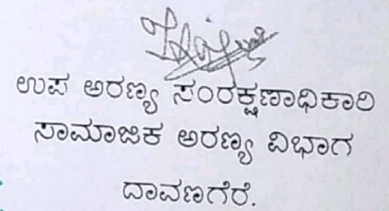 ಉಪ ಅರಣ್ಯ ಸಂರಕ್ಷಣಾಧಿಕಾರಿ
ಸಾಮಾಜಿಕ ಅರಣ್ಯ ವಿಭಾಗ
ದಾವಣಗೆರೆ.